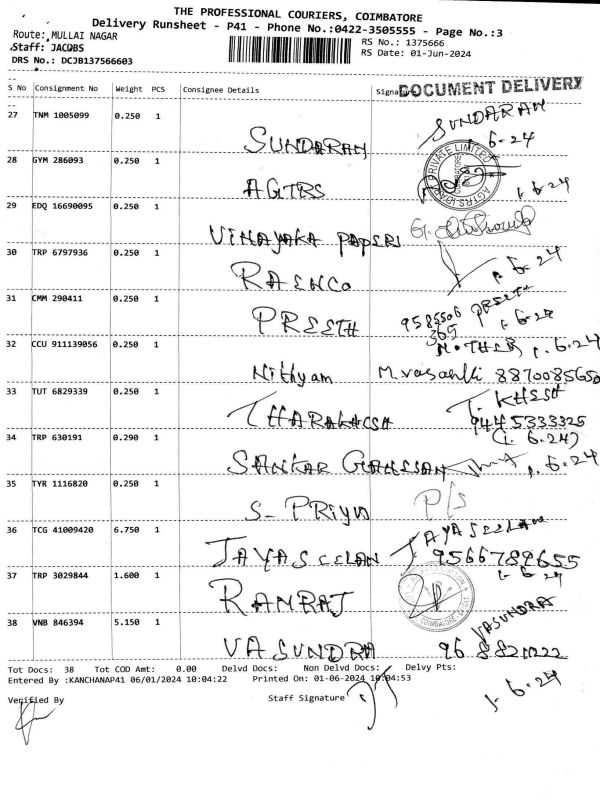 THE PROFESSIONAL COURIERS, COIMBATORE
Delivery Runsheet - P41 - Phone No.:0422-3505555 - Page No.:3
Route: MULLAI NAGAR
RS No.: 1375666
Staff: JACOBS
RS Date: 01-Jun-2024
DRS No.: DCJB137566603
S No Consignment No Weight PCS Consignee Details DOCUMENT DELIVERY
27 TNM 1005099 0.250 1 SUNDARAM SUNDARAM
1-6-24
28 GYM 286093 0.250 1 AGTRS 1-6-24
29 EDQ 16690095 0.250 1 VINAYAKA PAPERS
30 TRP 6797936 0.250 1 RAENCO 1-6-24
31 CMM 290411 0.250 1 PREETH 9585506 PREETH
365 1-6-24
32 CCU 911139056 0.250 1 MOTHER 1-6-24
Nithyam M.vasanthi 8870085650
33 TUT 6829339 0.250 1 THARAKHCSH T. KHESH
9445333325
34 TRP 630191 0.290 1 (1-6-24)
SANKAR GANESSAN 1-6-24
35 TYR 1116820 0.250 1 S- PRIYA P/S
36 TCG 41009420 6.750 1 JAYASEELAN
JAYASEELAN 9566789655
37 TRP 3029844 1.600 1 RAMRAJ 1-6-24
38 VNB 846394 5.150 1 VASUNDRA VASUNDRA
Tot Docs: 38 Tot COD Amt: 0.00 Delvd Docs: Non Delvd Docs: Delvy Pts:
Entered By :KANCHANAP41 06/01/2024 10:04:22 Printed On: 01-06-2024 10:04:53
Verified By Staff Signature 1-6-24